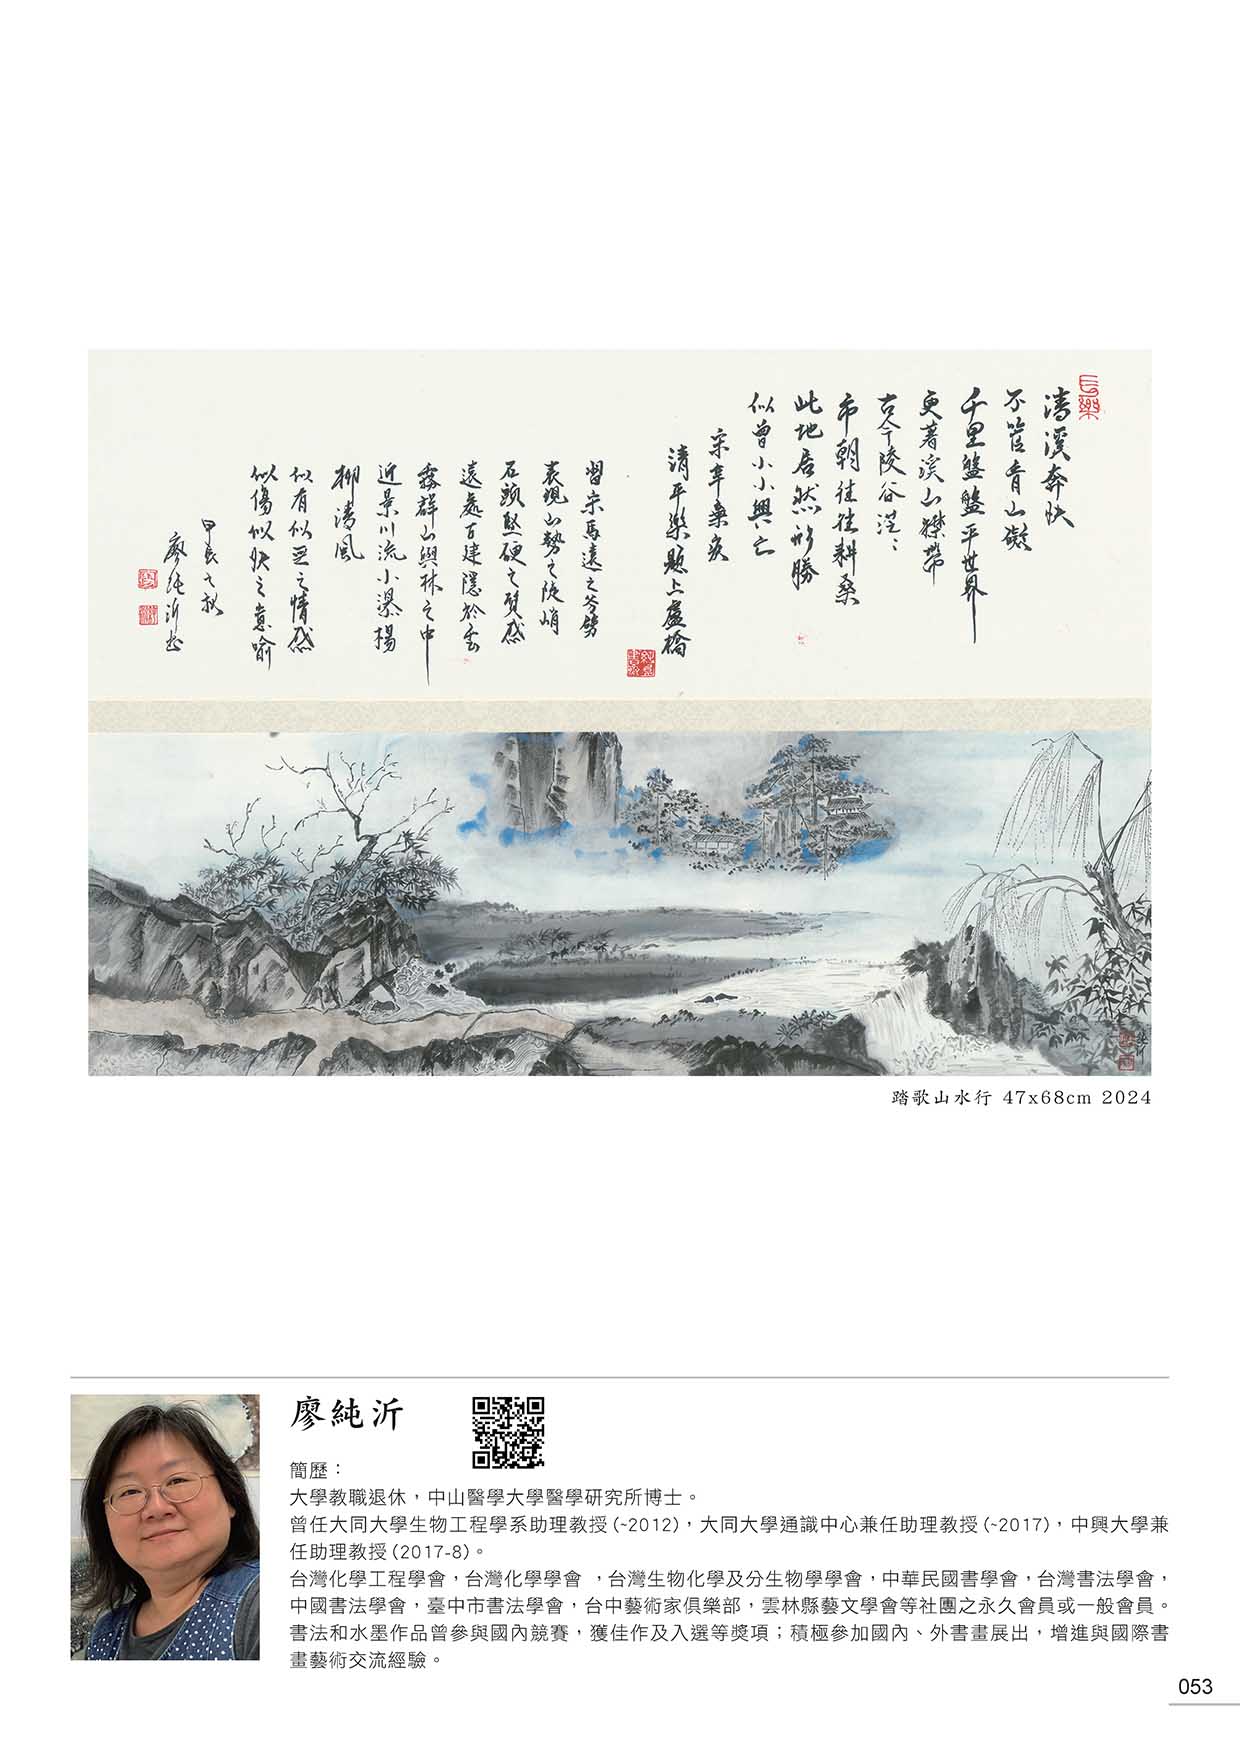 長樂
清溪奔快
不管青山礙
千里盤盤平世界
更著溪山襟帶
古今陵谷茫〻
市朝往往耕桑
此地居然形勝
似曾小小興亡
宋辛棄疾
清平樂題上盧橋
習宋馬遠之斧劈
表現山勢之陡峭
石頭堅硬之質感
遠處古建隱於雲
霧群山與林之中
近景川流小瀑楊
柳清風
似有似無之情感
似傷似快之意喻
甲辰之秋
廖純沂
純沂
踏歌山水行 47x68cm 2024
廖純沂
簡歷：
大學教職退休，中山醫學大學醫學研究所博士。
曾任大同大學生物工程學系助理教授(~2012)，大同大學通識中心兼任助理教授(~2017)，中興大學兼
任助理教授(2017-8)。
台灣化學工程學會，台灣化學學會 ，台灣生物化學及分生物學學會，中華民國書學會，台灣書法學會，
中國書法學會，臺中市書法學會，台中藝術家俱樂部，雲林縣藝文學會等社團之永久會員或一般會員。
書法和水墨作品曾參與國內競賽，獲佳作及入選等獎項；積極參加國內、外書畫展出，增進與國際書
畫藝術交流經驗。
053